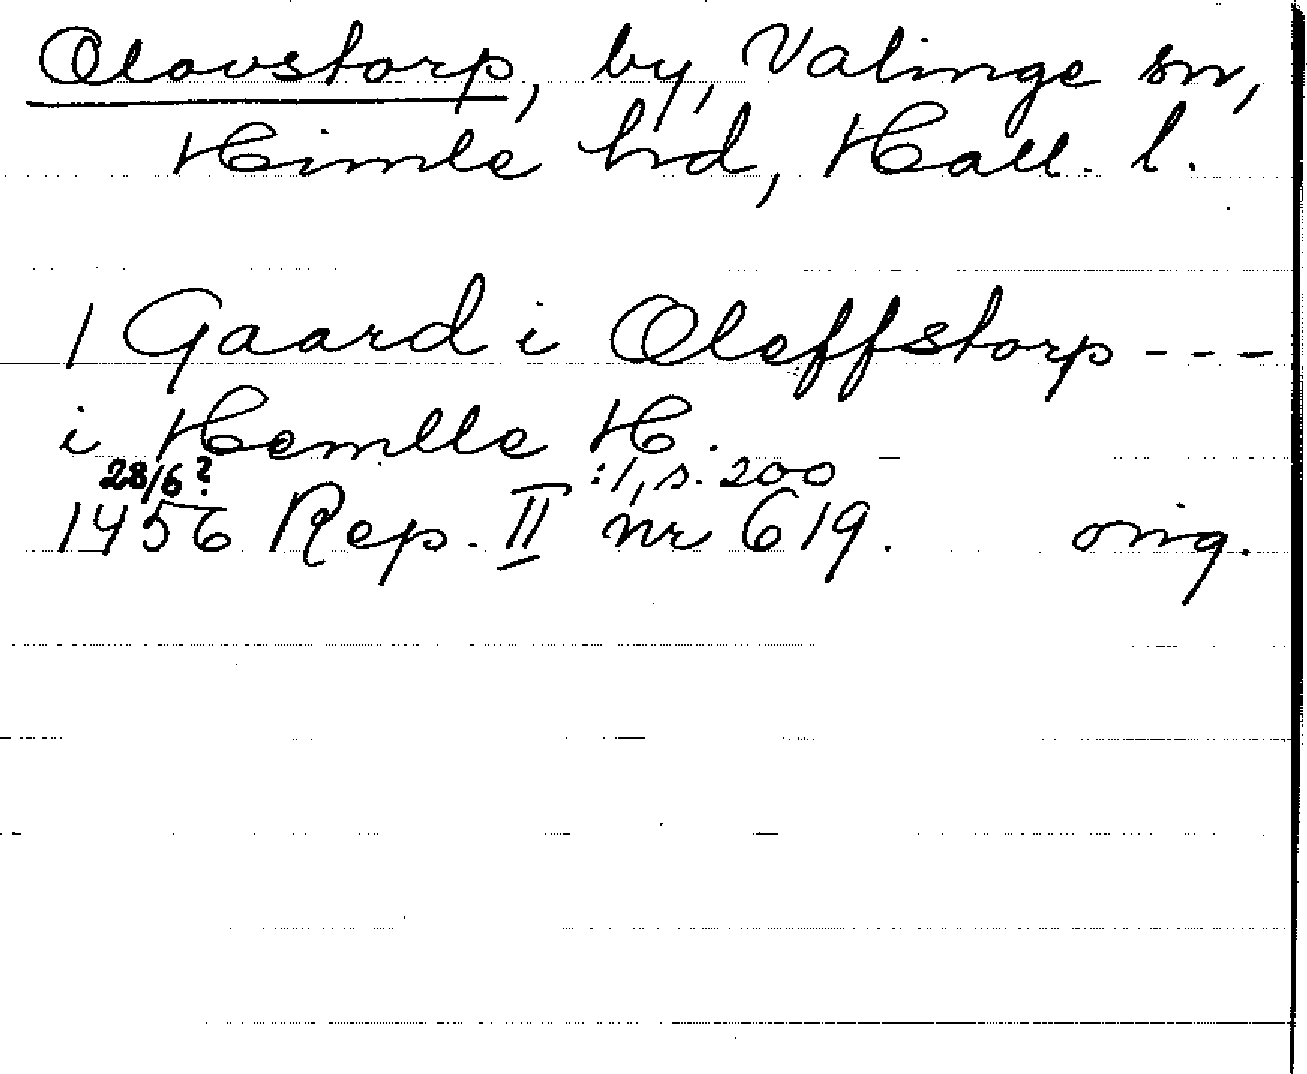 Olovstorp, by, Valinge sn,
Himle hrd, Hall. l.
1 Gaard i Oleffstorp - - -
i Hemlle H.
28/6? :1, s. 200
1456 Rep. II nr 619. orig.